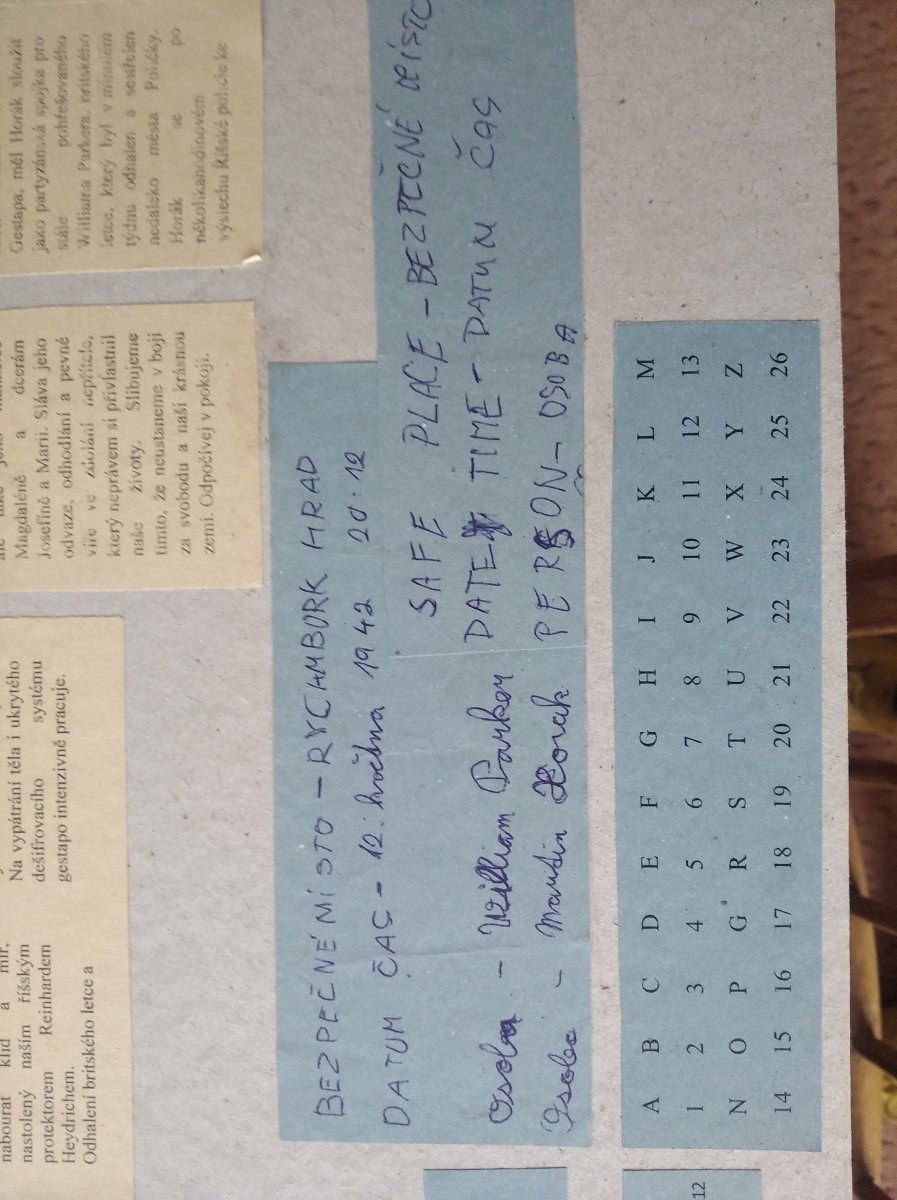 Gestapa, měl Horák sloužit
jako partyzánská spojka pro
stále pohřešovaného
Williama Parkera, britského
letce, který byl v minulém
týdnu odhalen a sestřelen
nedaleko města Poličky.
Horák se po
několikahodinovém
výslechu Říšské policie ke
Magdaléně a dcerám
Josefíně a Marii. Sláva jeho
odvaze, odhodlání a pevné
víře ve zdolání nepřítele,
který neprávem si přivlastnil
naše životy. Slibujeme
tímto, že neustaneme v boji
za svobodu a naši krásnou
zemi. Odpočívej v pokoji.
Na vypátrání těla i ukrytého
dešifrovacího systému
gestapo intenzivně pracuje.
nabourat klid a mír,
nastolený naším říšským
protektorem Reinhardem
Heydrichem.
Odhalení britského letce a
BEZPEČNÉ MÍSTO - RYCHMBORK HRAD
DATUM ČAS - 12. května 1942 20:12
Osoba - William Parker
Osoba - Martin Horak
SAFE PLACE - BEZPEČNÉ MÍSTO
DATE TIME - DATUM ČAS
PERSON - OSOBA
A B C D E F G H I J K L M
1 2 3 4 5 6 7 8 9 10 11 12 13
N O P G R S T U V W X Y Z
14 15 16 17 18 19 20 21 22 23 24 25 26
12